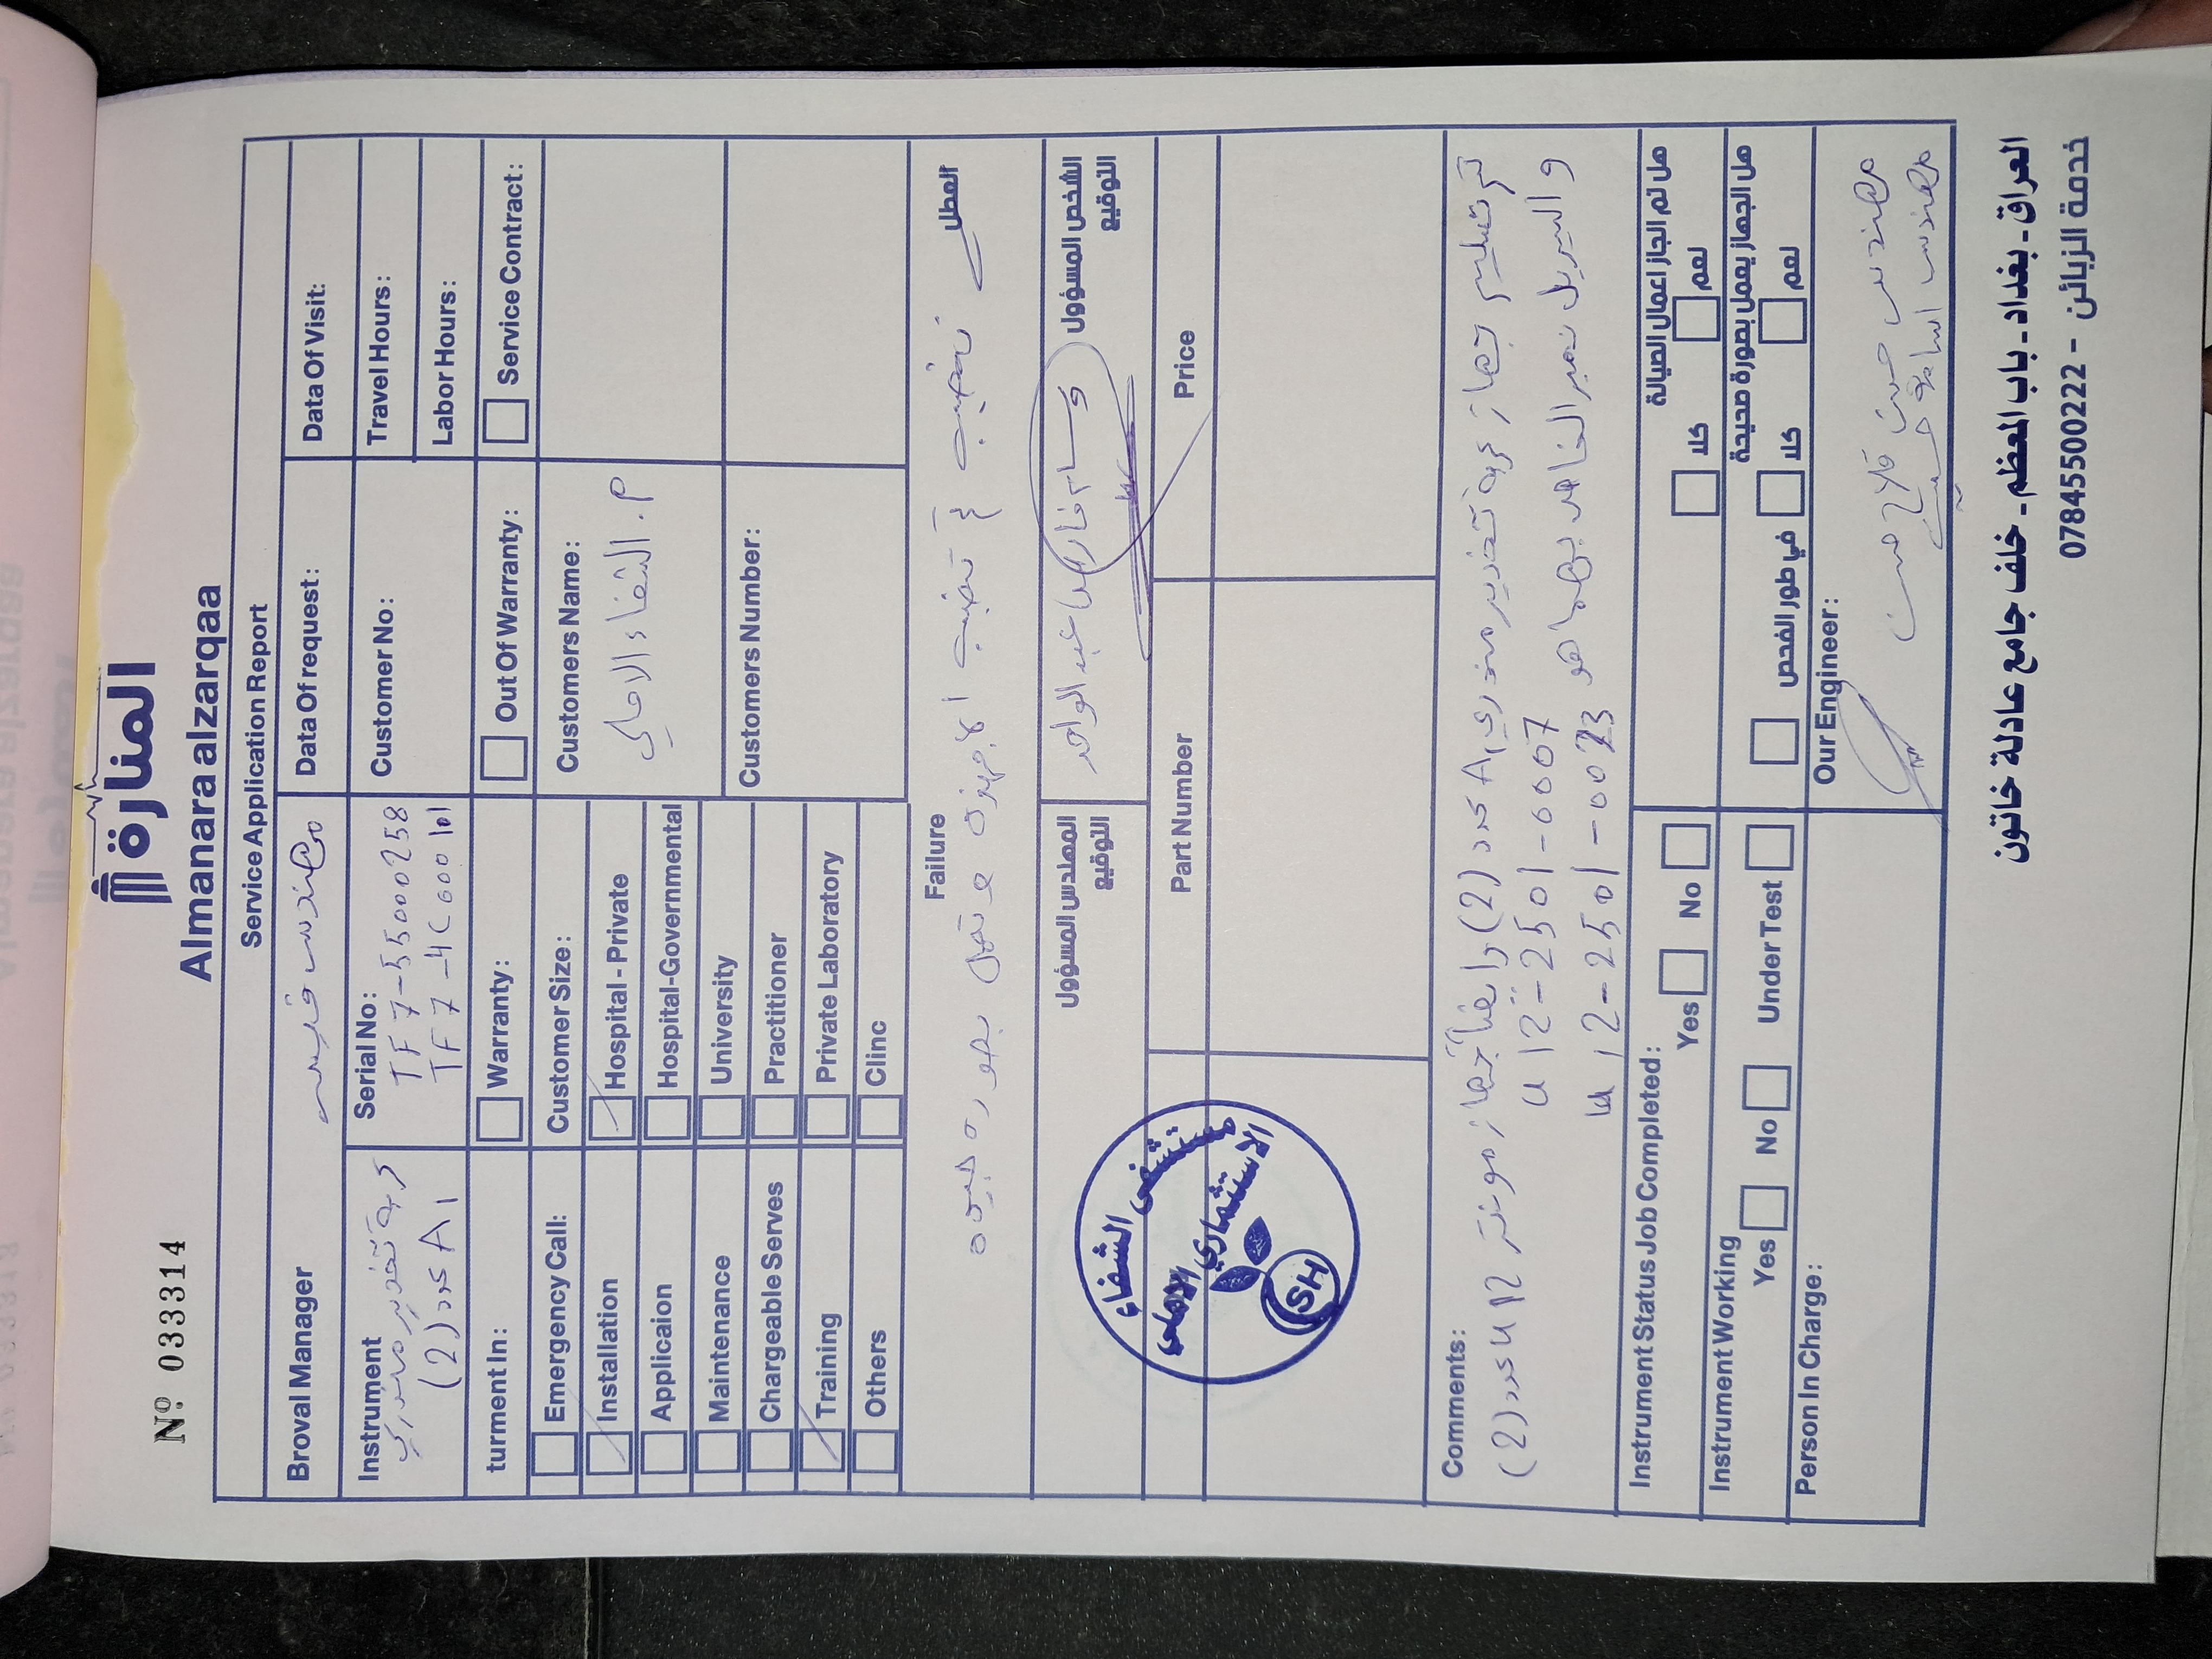 Nº 033314
المنارة
Almanara alzarqaa
Service Application Report
Broval Manager
مهندس قيس
Data Of request:
Data Of Visit:
Instrument
عربة تخدير مندري
A1 عدد (2)
Serial No:
TF7-55000258
TF7-4C000101
Customer No:
Travel Hours:
Labor Hours:
turment In:
Warranty:
Out Of Warranty:
Service Contract:
Emergency Call:
Installation
Applicaion
Maintenance
Chargeable Serves
Training
Others
Customer Size:
Hospital - Private
Hospital-Governmental
University
Practitioner
Private Laboratory
Clinc
Customers Name:
م. الشفاء الاهلي
Customers Number:
Failure
العطل
تنصيب
تم تنصيب الاجهزة وتعمل بصورة جيدة
المهندس المسؤول
التوقيع
الشخص المسؤول
التوقيع
عبد الواحد
Part Number
Price
مستشفى الشفاء
الاستثماري الاهلي
SH
Comments:
تم تسليم جهاز عربة تخدير مندري A1 عدد (2) وايضاً جهاز مونتر U12 عدد (2)
والسيريل نمبر الخاص بهما هو
U12-2501-0007
U12-2501-0023
Instrument Status Job Completed:
Yes
No
هل تم انجاز اعمال الصيانة
كلا
نعم
Instrument Working
Yes
No
Under Test
هل الجهاز يعمل بصورة صحيحة
في طور الفحص
كلا
نعم
Person In Charge:
Our Engineer:
مهندس حسن فلاح حسن
مهندس
العراق - بغداد - باب المعظم - خلف جامع عادلة خاتون
خدمة الزبائن - 07845500222